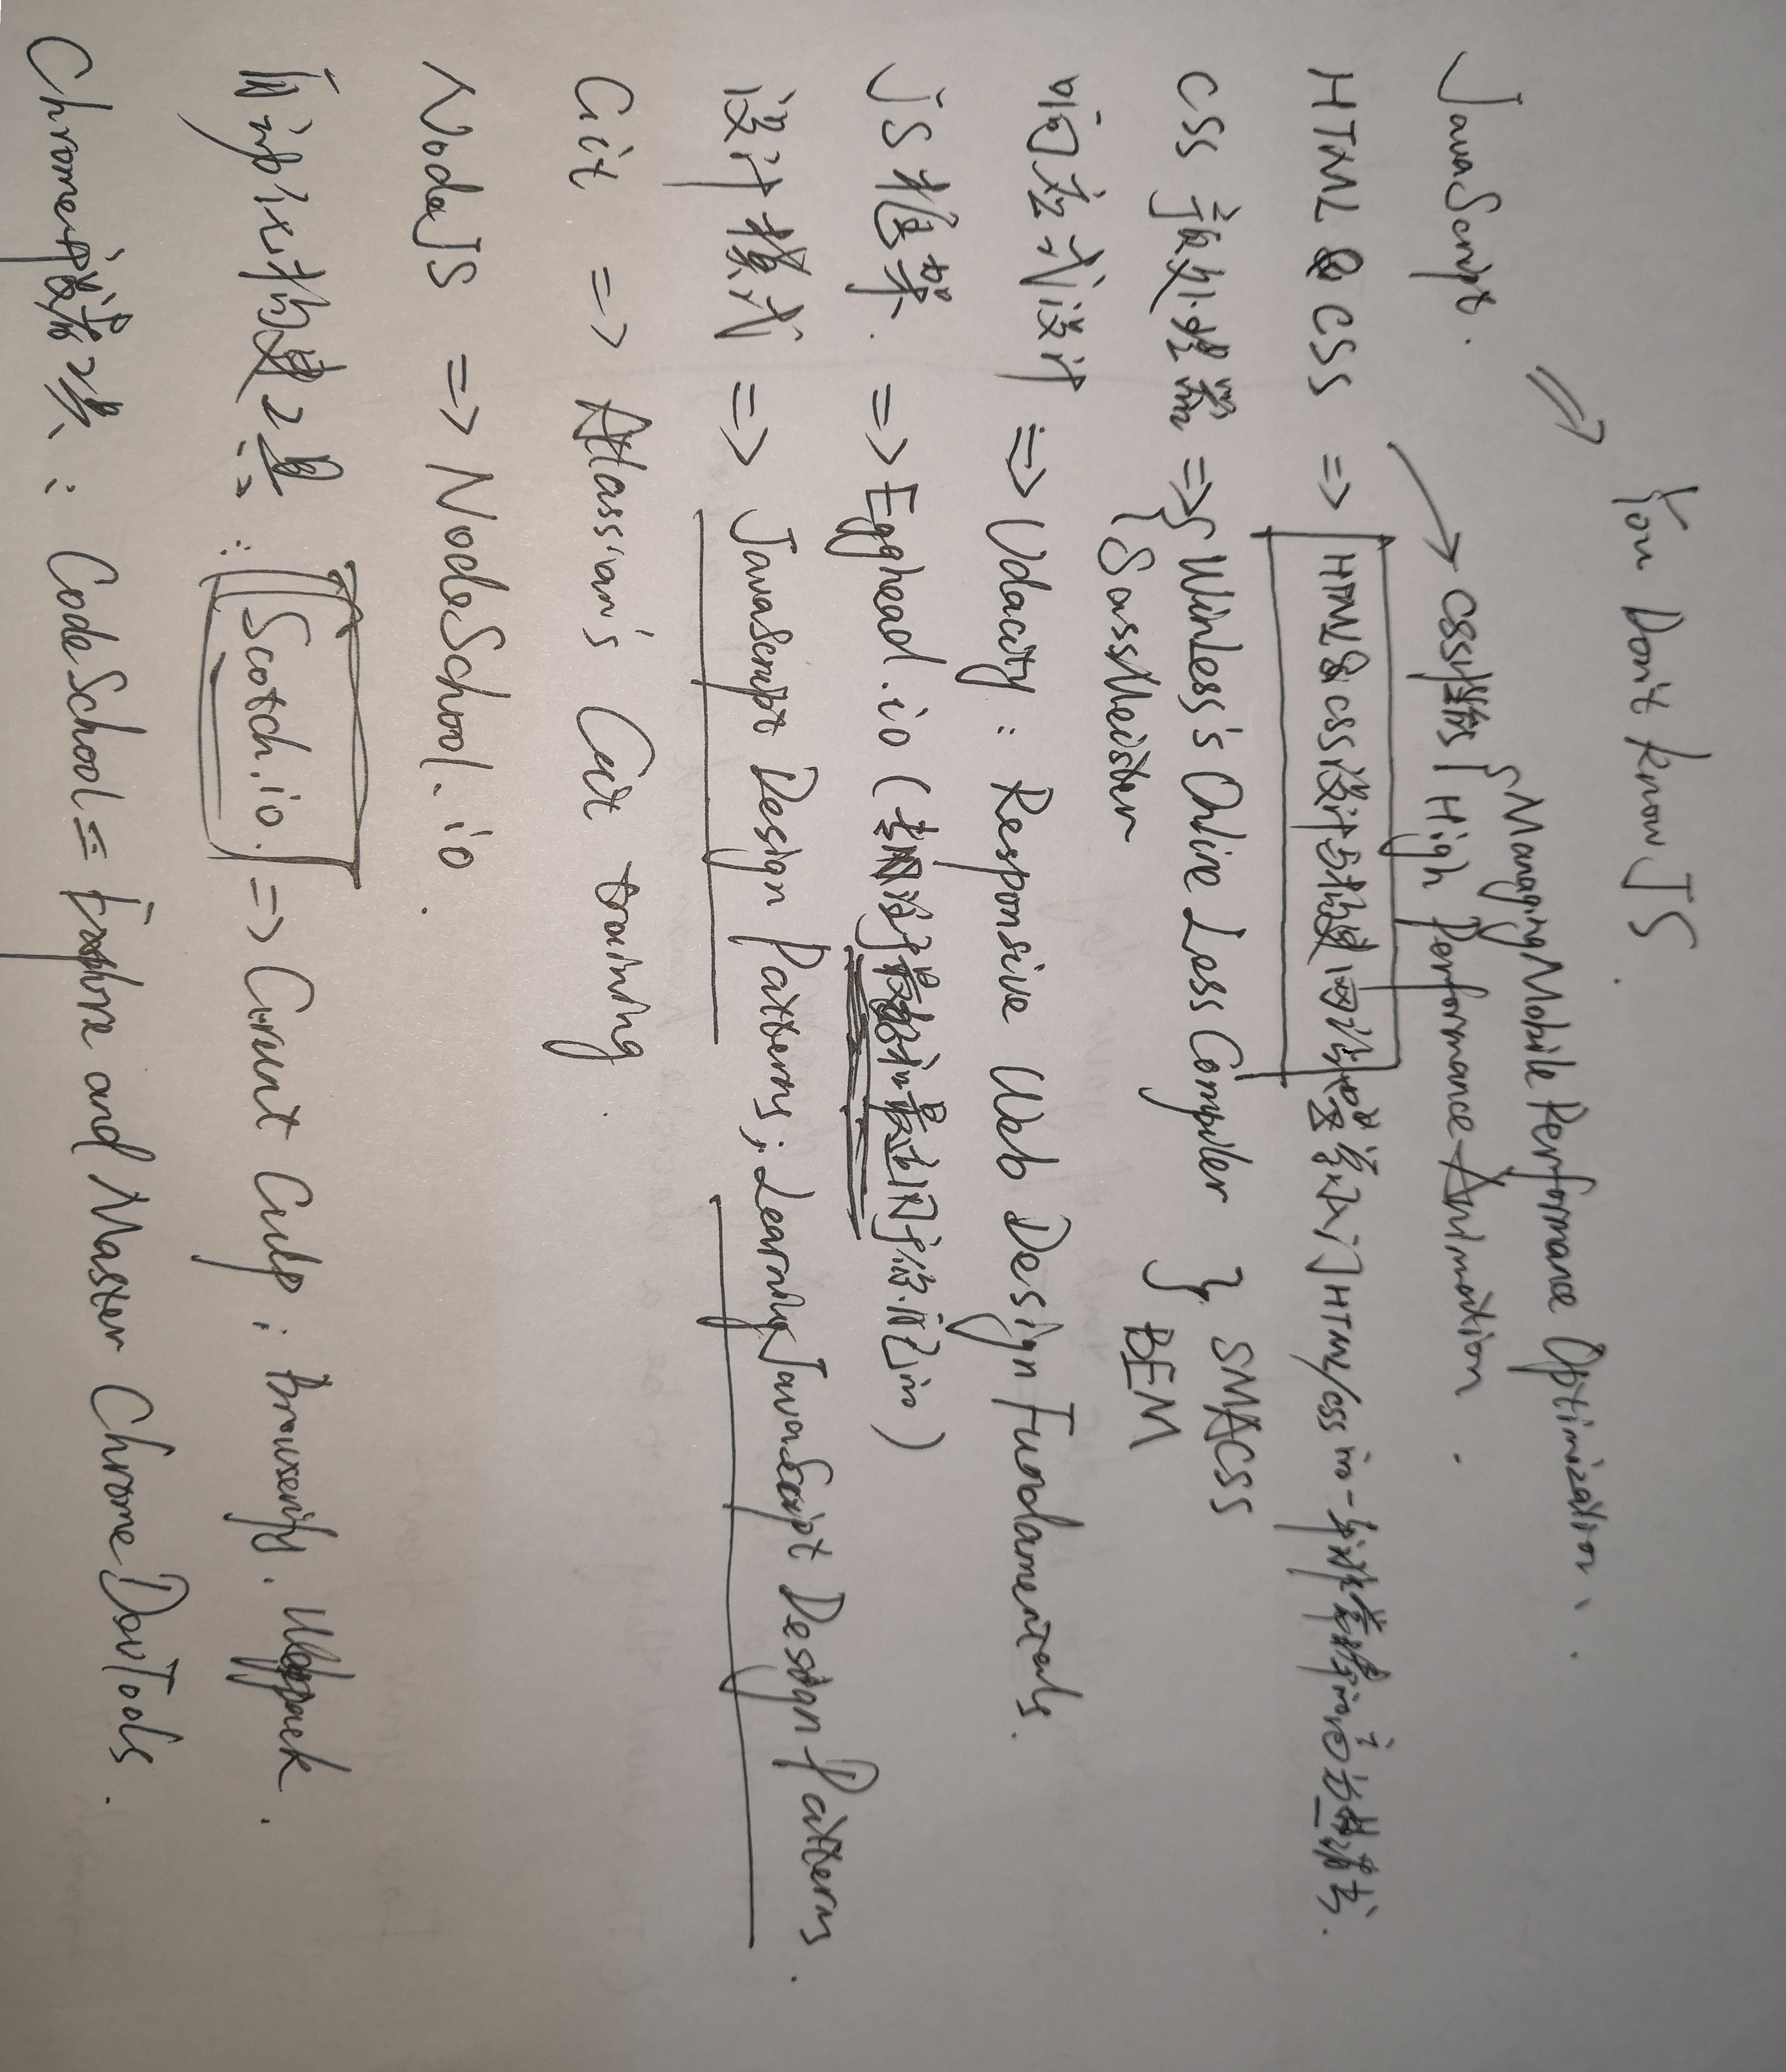 You Don't know JS.
JavaScript.
Managing Mobile Performance Optimization、.
CSS性能
High Performance Animation.
HTML & CSS => HTML&CSS设计与构建网站 学习入门HTML/css的一本非常棒的高分书.
CSS 预处理器 => WinLess's Online Less Compiler
SassMeister
SMACSS
BEM
响应式设计 => Udacity: Responsive Web Design Fundamentals.
JS框架. => Egghead.io (专注于最好和最适用于你自己的)
设计模式 => JavaScript Design Patterns; Learning JavaScript Design Patterns.
Git => Atlassian's Git training.
NodeJS => NodeSchool.io.
自动化构建工具: Scotch.io. => Grunt Culp; Browserify. Webpack.
Chrome开发者工具: CodeSchool = Explore and Master Chrome DevTools.